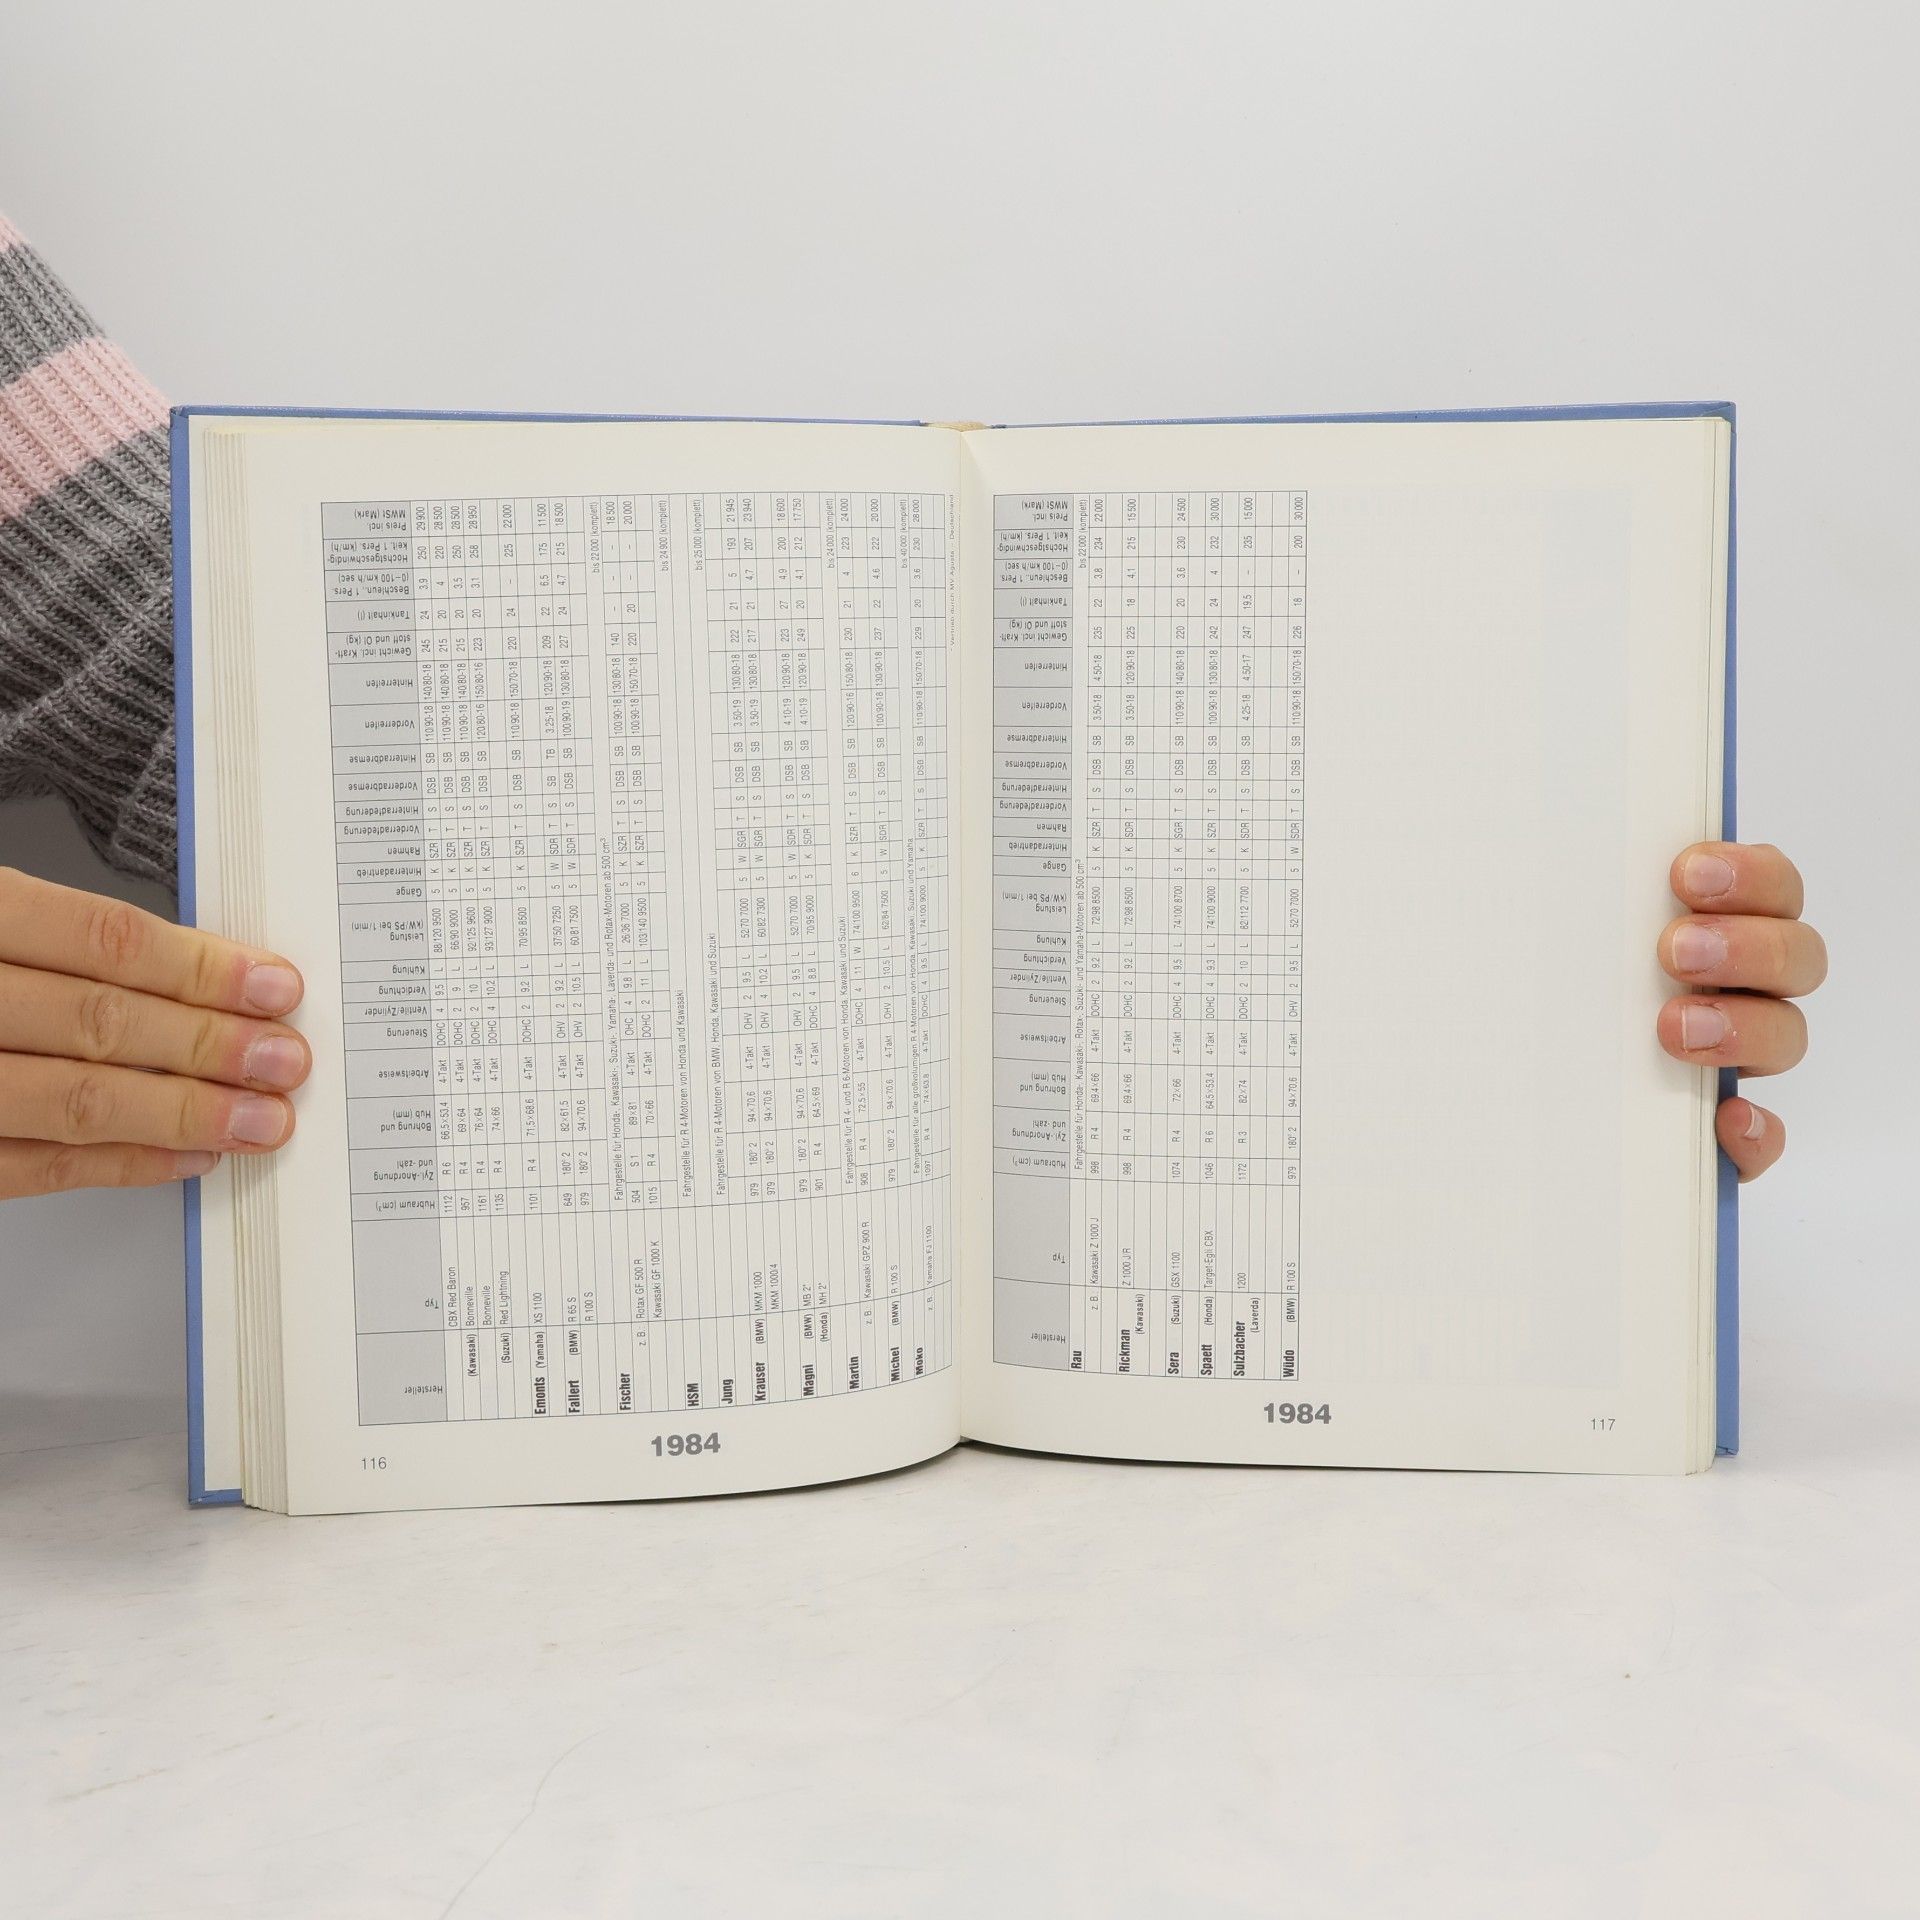 Hersteller Typ Hubraum (cm³) Zyl.-Anordnung und -zahl Bohrung und Hub (mm) Arbeitsweise Steuerung Ventile/Zylinder Verdichtung Kühlung Leistung (kW/PS bei 1/min) Gänge Hinterradantrieb Rahmen Vorderradfederung Hinterradfederung Vorderradbremse Hinterradbremse Vorderreifen Hinterreifen Gewicht incl. Kraftstoff und Öl (kg) Tankinhalt (l) Beschleun., 1 Pers. (0–100 km/h sec) Höchstgeschwindigkeit, 1 Pers. (km/h) Preis incl. MWSt (Mark)
CBX Red Baron 1112 R 6 66,5×53,4 4-Takt DOHC 4 9,5 L 88/120 9500 5 K SZR T S DSB SB 110/90-18 140/80-18 245 24 3,9 250 29 900
(Kawasaki) Bonneville 957 R 4 69×64 4-Takt DOHC 2 9 L 66/90 9000 5 K SZR T S DSB SB 110/90-18 140/80-18 215 20 4 220 28 500
Bonneville 1161 R 4 76×64 4-Takt DOHC 2 10 L 92/125 9600 5 K SZR T S DSB SB 110/90-18 140/80-18 215 20 3,5 250 28 500
(Suzuki) Red Lightning 1135 R 4 74×66 4-Takt DOHC 4 10,2 L 93/127 9000 5 K SZR T S DSB SB 120/80-16 150/80-16 223 20 3,1 258 28 950
Emonts (Yamaha) XS 1100 1101 R 4 71,5×68,6 4-Takt DOHC 2 9,2 L 70/95 8500 5 K SZR T S DSB SB 110/90-18 150/70-18 220 24 – 225 22 000
Fallert (BMW) R 65 S 649 180° 2 82×61,5 4-Takt OHV 2 9,2 L 37/50 7250 5 W SDR T S SB TB 3.25-18 120/90-18 209 22 6,5 175 11 500
R 100 S 979 180° 2 94×70,6 4-Takt OHV 2 10,5 L 60/81 7500 5 W SDR T S DSB SB 100/90-19 130/80-18 227 24 4,7 215 18 500
Fischer Fahrgestelle für Honda-, Kawasaki-, Suzuki-, Yamaha-, Laverda- und Rotax-Motoren ab 500 cm³ bis 22 000 (komplett)
z. B. Rotax GF 500 R 504 S 1 89×81 4-Takt OHC 4 9,8 L 26/36 7000 5 K SZR T S DSB SB 100/90-18 130/80-18 140 – – – 18 500
Kawasaki GF 1000 K 1015 R 4 70×66 4-Takt DOHC 2 11 L 103/140 9500 5 K SZR T S DSB SB 100/90-18 150/70-18 220 20 – – 20 000
HSM Fahrgestelle für R 4-Motoren von Honda und Kawasaki bis 24 900 (komplett)
Jung Fahrgestelle für R 4-Motoren von BMW, Honda, Kawasaki und Suzuki bis 25 000 (komplett)
Krauser (BMW) MKM 1000 979 180° 2 94×70,6 4-Takt OHV 2 9,5 L 52/70 7000 5 W SGR T S DSB SB 3.50-19 130/80-18 222 21 5 193 21 945
MKM 1000/4 979 180° 2 94×70,6 4-Takt OHV 4 10,2 L 60/82 7300 5 W SGR T S DSB SB 3.50-19 130/80-18 217 21 4,7 207 23 940
Magni (BMW) MB 2* 979 180° 2 94×70,6 4-Takt OHV 2 9,5 L 52/70 7000 5 W SDR T S DSB SB 4.10-19 120/90-18 223 27 4,9 200 18 600
(Honda) MH 2* 901 R 4 64,5×69 4-Takt DOHC 4 8,8 L 70/95 9000 5 K SDR T S DSB SB 4.10-19 120/90-18 249 20 4,1 212 17 750
Martin Fahrgestelle für R 4- und R 6-Motoren von Honda, Kawasaki und Suzuki bis 24 000 (komplett)
z. B. Kawasaki GPZ 900 R 908 R 4 72,5×55 4-Takt DOHC 4 11 W 74/100 9500 6 K SZR T S DSB SB 120/90-16 150/80-18 230 21 4 223 24 000
Michel (BMW) R 100 S 979 180° 2 94×70,6 4-Takt OHV 2 10,5 L 62/84 7500 5 W SDR T S DSB SB 100/90-18 130/90-18 237 22 4,6 222 20 000
Moko Fahrgestelle für alle großvolumigen R 4-Motoren von Honda, Kawasaki, Suzuki und Yamaha bis 40 000 (komplett)
z. B. Yamaha FJ 1100 1097 R 4 74×63,8 4-Takt DOHC 4 9,5 L 74/100 9000 5 K SZR T S DSB SB 110/90-18 150/70-18 229 20 3,6 230 28 000
* Vertrieb durch MV Agusta – Deutschland
1984
116
Hersteller Typ Hubraum (cm³) Zyl.-Anordnung und -zahl Bohrung und Hub (mm) Arbeitsweise Steuerung Ventile/Zylinder Verdichtung Kühlung Leistung (kW/PS bei 1/min) Gänge Hinterradantrieb Rahmen Vorderradfederung Hinterradfederung Vorderradbremse Hinterradbremse Vorderreifen Hinterreifen Gewicht incl. Kraftstoff und Öl (kg) Tankinhalt (l) Beschleun., 1 Pers. (0–100 km/h sec) Höchstgeschwindigkeit, 1 Pers. (km/h) Preis incl. MWSt (Mark)
Rau Fahrgestelle für Honda-, Kawasaki-, Rotax-, Suzuki- und Yamaha-Motoren ab 500 cm³ bis 22 000 (komplett)
z. B. Kawasaki Z 1000 J 998 R 4 69,4×66 4-Takt DOHC 2 9,2 L 72/98 8500 5 K SZR T S DSB SB 3.50-18 4.50-18 235 22 3,8 234 22 000
Rickman (Kawasaki) Z 1000 J/R 998 R 4 69,4×66 4-Takt DOHC 2 9,2 L 72/98 8500 5 K SDR T S DSB SB 3.50-18 120/90-18 225 18 4,1 215 15 500
Sera (Suzuki) GSX 1100 1074 R 4 72×66 4-Takt DOHC 4 9,5 L 74/100 8700 5 K SGR T S DSB SB 110/90-18 140/80-18 220 20 3,6 230 24 500
Spaett (Honda) Target-Egli CBX 1046 R 6 64,5×53,4 4-Takt DOHC 4 9,3 L 74/100 9000 5 K SZR T S DSB SB 100/90-18 130/80-18 242 24 4 232 30 000
Sulzbacher (Laverda) 1200 1172 R 3 82×74 4-Takt DOHC 2 10 L 82/112 7700 5 K SDR T S DSB SB 4.25-18 4.50-17 247 19,5 – 235 15 000
Wüdo (BMW) R 100 S 979 180° 2 94×70,6 4-Takt OHV 2 9,5 L 52/70 7000 5 W SDR T S DSB SB 110/90-18 150/70-18 226 18 – 200 30 000
1984
117